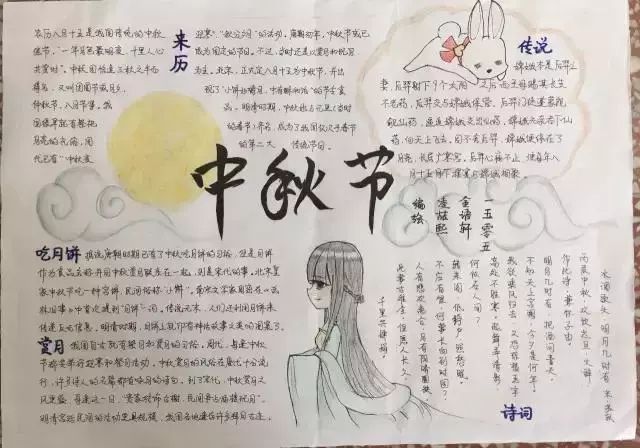 来历
农历八月十五是我国传统的中秋
佳节。"一年月色最明夜,千里人心
共赏时"。中秋因恰逢三秋之半而
得名,又叫团圆节或月夕、
仲秋节、八月节等。我
国很早就有祭祀
月亮的礼俗,周
代已有"中秋夜
迎寒"、"秋分夕月"的活动。唐朝初年,中秋节成已
成为固定的节日。不过,当时还是以赏月和祝贺
为主。北宋,正式定八月十五为中秋节,并出
现了"小饼如嚼月,中有酥和饴"的节令食
品。明清时期,中秋也与元旦(当时
的春节)齐名,成为了我国仅次于春节
的第二大传统节日。
传说
嫦娥本是后羿之
妻,后羿射下9个太阳,之后西王母赐其长生
不老药,后羿交与嫦娥保管。后羿门徒逢蒙觊
觎仙药,逼迫嫦娥交出仙药,嫦娥无奈吞下仙
药,向天上飞去。因不舍后羿,嫦娥便停在了
月亮,长居广寒宫。后羿心痛不止,
八月十五
中秋节
一五零五
金语轩
凌兹熙
编绘
吃月饼
据说唐朝时期已有了中秋吃月饼的习俗,但是月饼
作为食品名称并同中秋赏月联系在一起,则是宋代的事。北宋皇
家中秋节吃一种宫饼,民间俗称"小饼"。
传递反元信息。明清时期,月饼上就印有神话故事之类的图案了。
赏月
我国自古就有祭月和赏月的习俗。周代,每逢中秋
节都要举行迎寒和祭月活动。中秋赏月的风俗在唐代十分流
行,许多诗人的名篇都有咏月的诗句。到了宋代,中秋赏月之
风更盛,每逢这一日,"贵家结饰台榭,民间争占酒楼玩月"。
明清宫廷民间的活动更具规模,我国各地遗存许多拜月古迹。
诗词
水调歌头 明月几时有 宋 苏轼
丙辰中秋,欢饮达旦,大醉,
作此诗,兼怀子由。
明月几时有,把酒问青天。
不知天上宫阙,今夕是何年。
我欲乘风归去,又恐琼楼玉宇,
高处不胜寒。起舞弄清影,
何似在人间?
转朱阁,低绮户,照无眠。
不应有恨,何事长向别时圆?
人有悲欢离合,月有阴晴圆缺,
此事古难全。但愿人长久,
千里共婵娟。